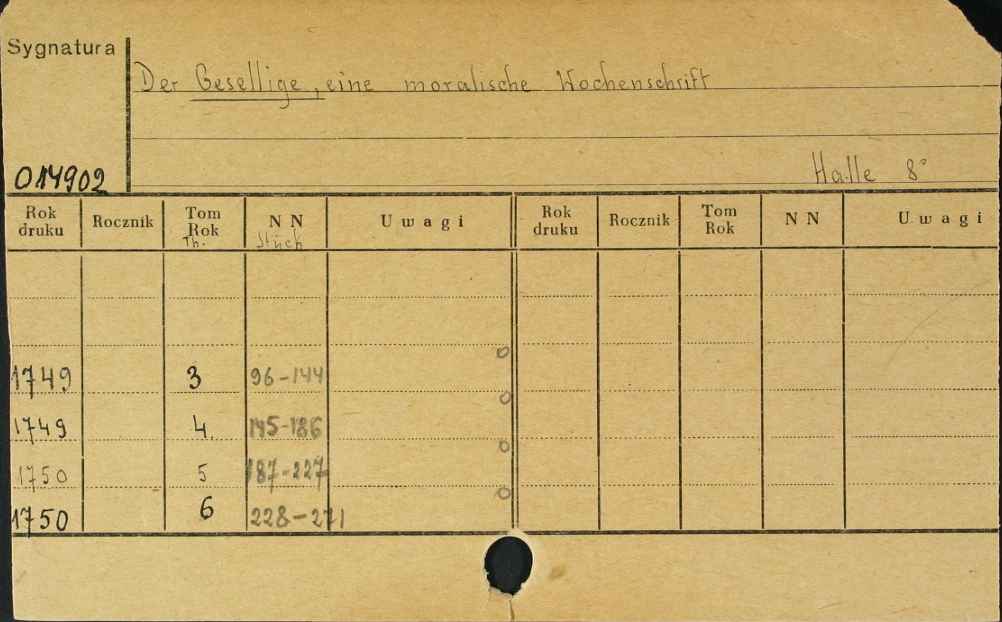 Sygnatura
Der Gesellige, eine moralische Wochenschrift
014902
Halle 8°
Rok druku Rocznik Tom Rok Th. NN Stück Uwagi Rok druku Rocznik Tom Rok NN Uwagi
1749 3 96-144
1749 4. 145-186
1750 5 187-227
1750 6 228-271